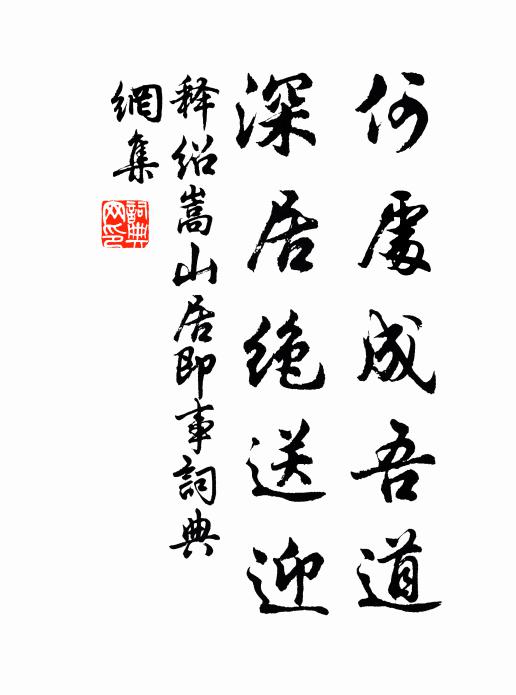 何處成吾道
深居绝送迎
释绍嵩山居即事詞典
網集
詞典
网印